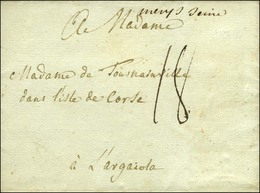 mery s Seine
A Madame
Madame de Tousnainville
dans l'isle de Corse
18
à L'argaiola